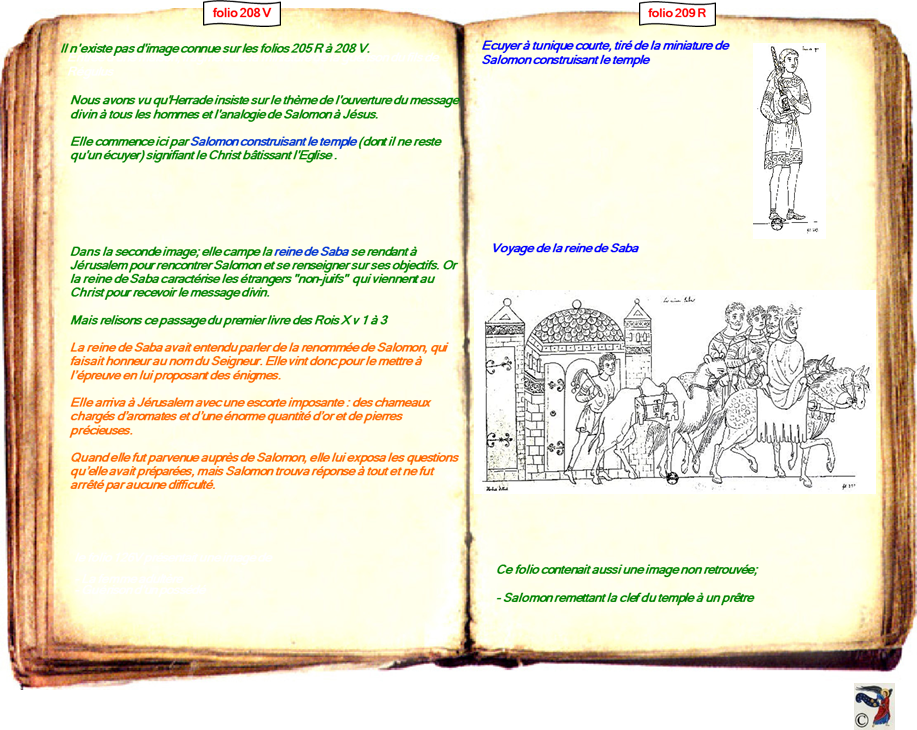 folio 208 V
Il n'existe pas d'image connue sur les folios 205 R à 208 V.
Nous avons vu qu'Herrade insiste sur le thème de l'ouverture du message
divin à tous les hommes et l'analogie de Salomon à Jésus.
Elle commence ici par Salomon construisant le temple (dont il ne reste
qu'un écuyer) signifiant le Christ bâtissant l'Eglise .
Dans la seconde image; elle campe la reine de Saba se rendant à
Jérusalem pour rencontrer Salomon et se renseigner sur ses objectifs. Or
la reine de Saba caractérise les étrangers "non-juifs" qui viennent au
Christ pour recevoir le message divin.
Mais relisons ce passage du premier livre des Rois X v 1 à 3
La reine de Saba avait entendu parler de la renommée de Salomon, qui
faisait honneur au nom du Seigneur. Elle vint donc pour le mettre à
l'épreuve en lui proposant des énigmes.
Elle arriva à Jérusalem avec une escorte imposante : des chameaux
chargés d'aromates et d'une énorme quantité d'or et de pierres
précieuses.
Quand elle fut parvenue auprès de Salomon, elle lui exposa les questions
qu'elle avait préparées, mais Salomon trouva réponse à tout et ne fut
arrêté par aucune difficulté.
folio 209 R
Ecuyer à tunique courte, tiré de la miniature de
Salomon construisant le temple
Voyage de la reine de Saba
Ce folio contenait aussi une image non retrouvée;
- Salomon remettant la clef du temple à un prêtre
©